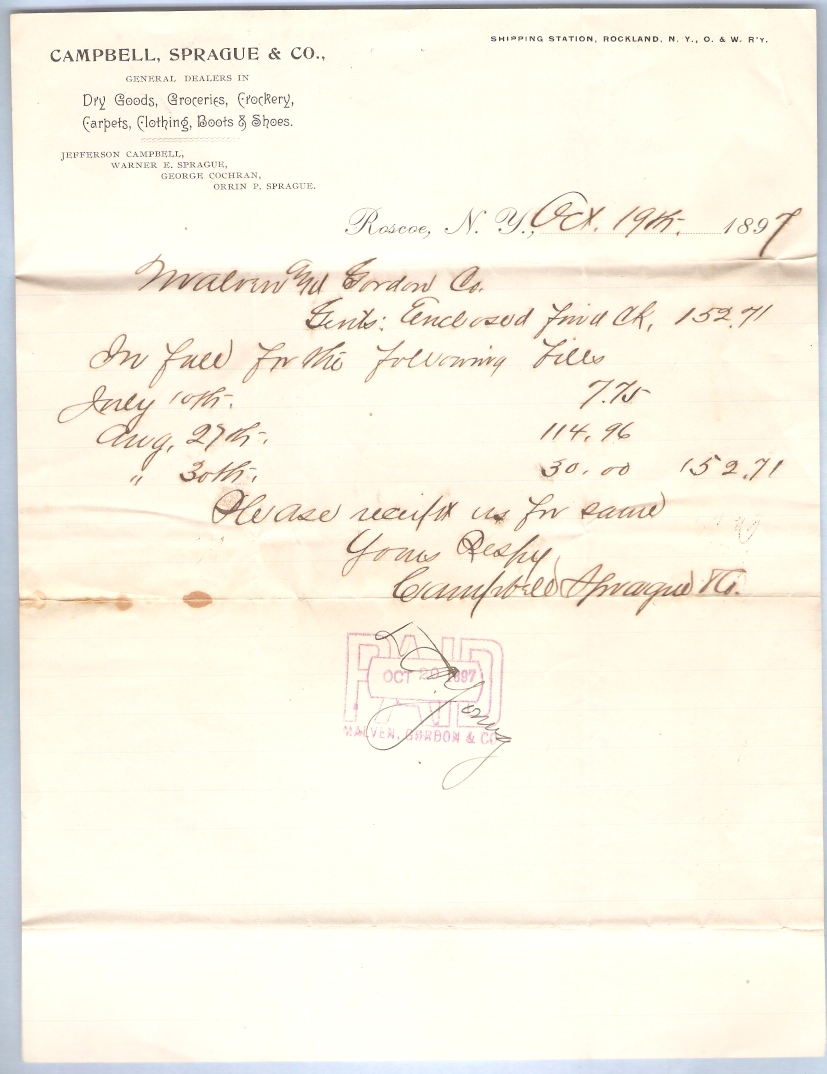 SHIPPING STATION, ROCKLAND, N. Y., O. & W. R'Y.
CAMPBELL, SPRAGUE & CO.,
GENERAL DEALERS IN
Dry Goods, Groceries, Crockery,
Carpets, Clothing, Boots & Shoes.
JEFFERSON CAMPBELL,
WARNER E. SPRAGUE,
GEORGE COCHRAN,
ORRIN P. SPRAGUE.
Roscoe, N. Y., Oct. 19th. 1897
Malven Gordon Co.
Gents: Enclosed find Ck, 152.71
In full for the following bills
July 10th. 7.75
Aug. 27th. 114.96
" 30th. 30.00 152.71
Please receipt us for same
Yours Respy
Campbell Sprague & Co.
PAID
OCT 20 1897
MALVEN, GORDON & CO
Young